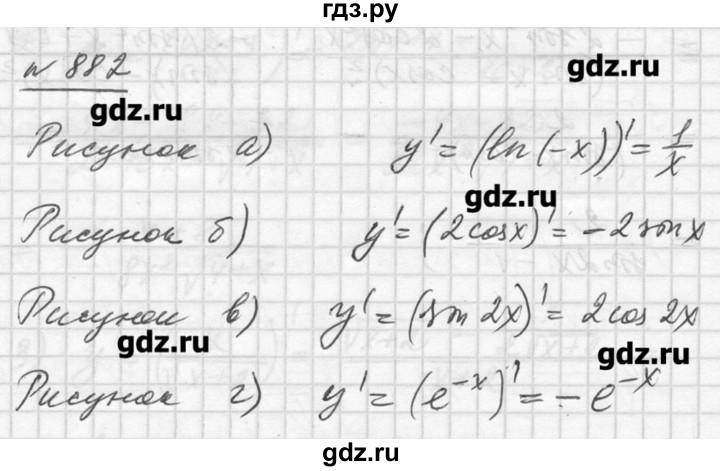 гдз.ру
№ 882
gdz.ru
Рисунок а) y' = (ln(-x))' = 1/x
gdz.ru
Рисунок б) y' = (2cosx)' = -2sinx
Рисунок в) y' = (sin 2x)' = 2cos 2x
gdz.ru
gdz.ru
Рисунок г) y' = (e^-x)' = -e^-x
gdz.ru